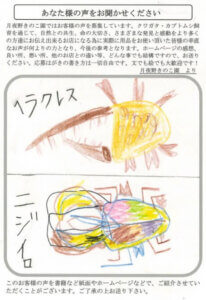 あなた様の声をお聞かせください
月夜野きのこ園ではお客様の声を募集しています。クワガタ・カブトムシ飼
育を通じて、自然との共生、命の大切さ、さまざまな発見と感動をより多く
の方達にお伝え出来るお店になる為に実際に用品をお使い頂いた皆様の率直
なお声が何よりの力となり、今後の参考となります。ホームページの感想、
良い所、悪い所、他のお店との違い、どんな事でも結構ですので、お送り
ください。応募がきの書き方は一切自由です。文でも絵でも大歓迎です！
月夜野きのこ園 より
ヘラクレス
ニジイロ
このお客様の声を書籍など紙面やホームページなどで、ご紹介させてい
ただくことがございます。ご了承の上お送り下さい。